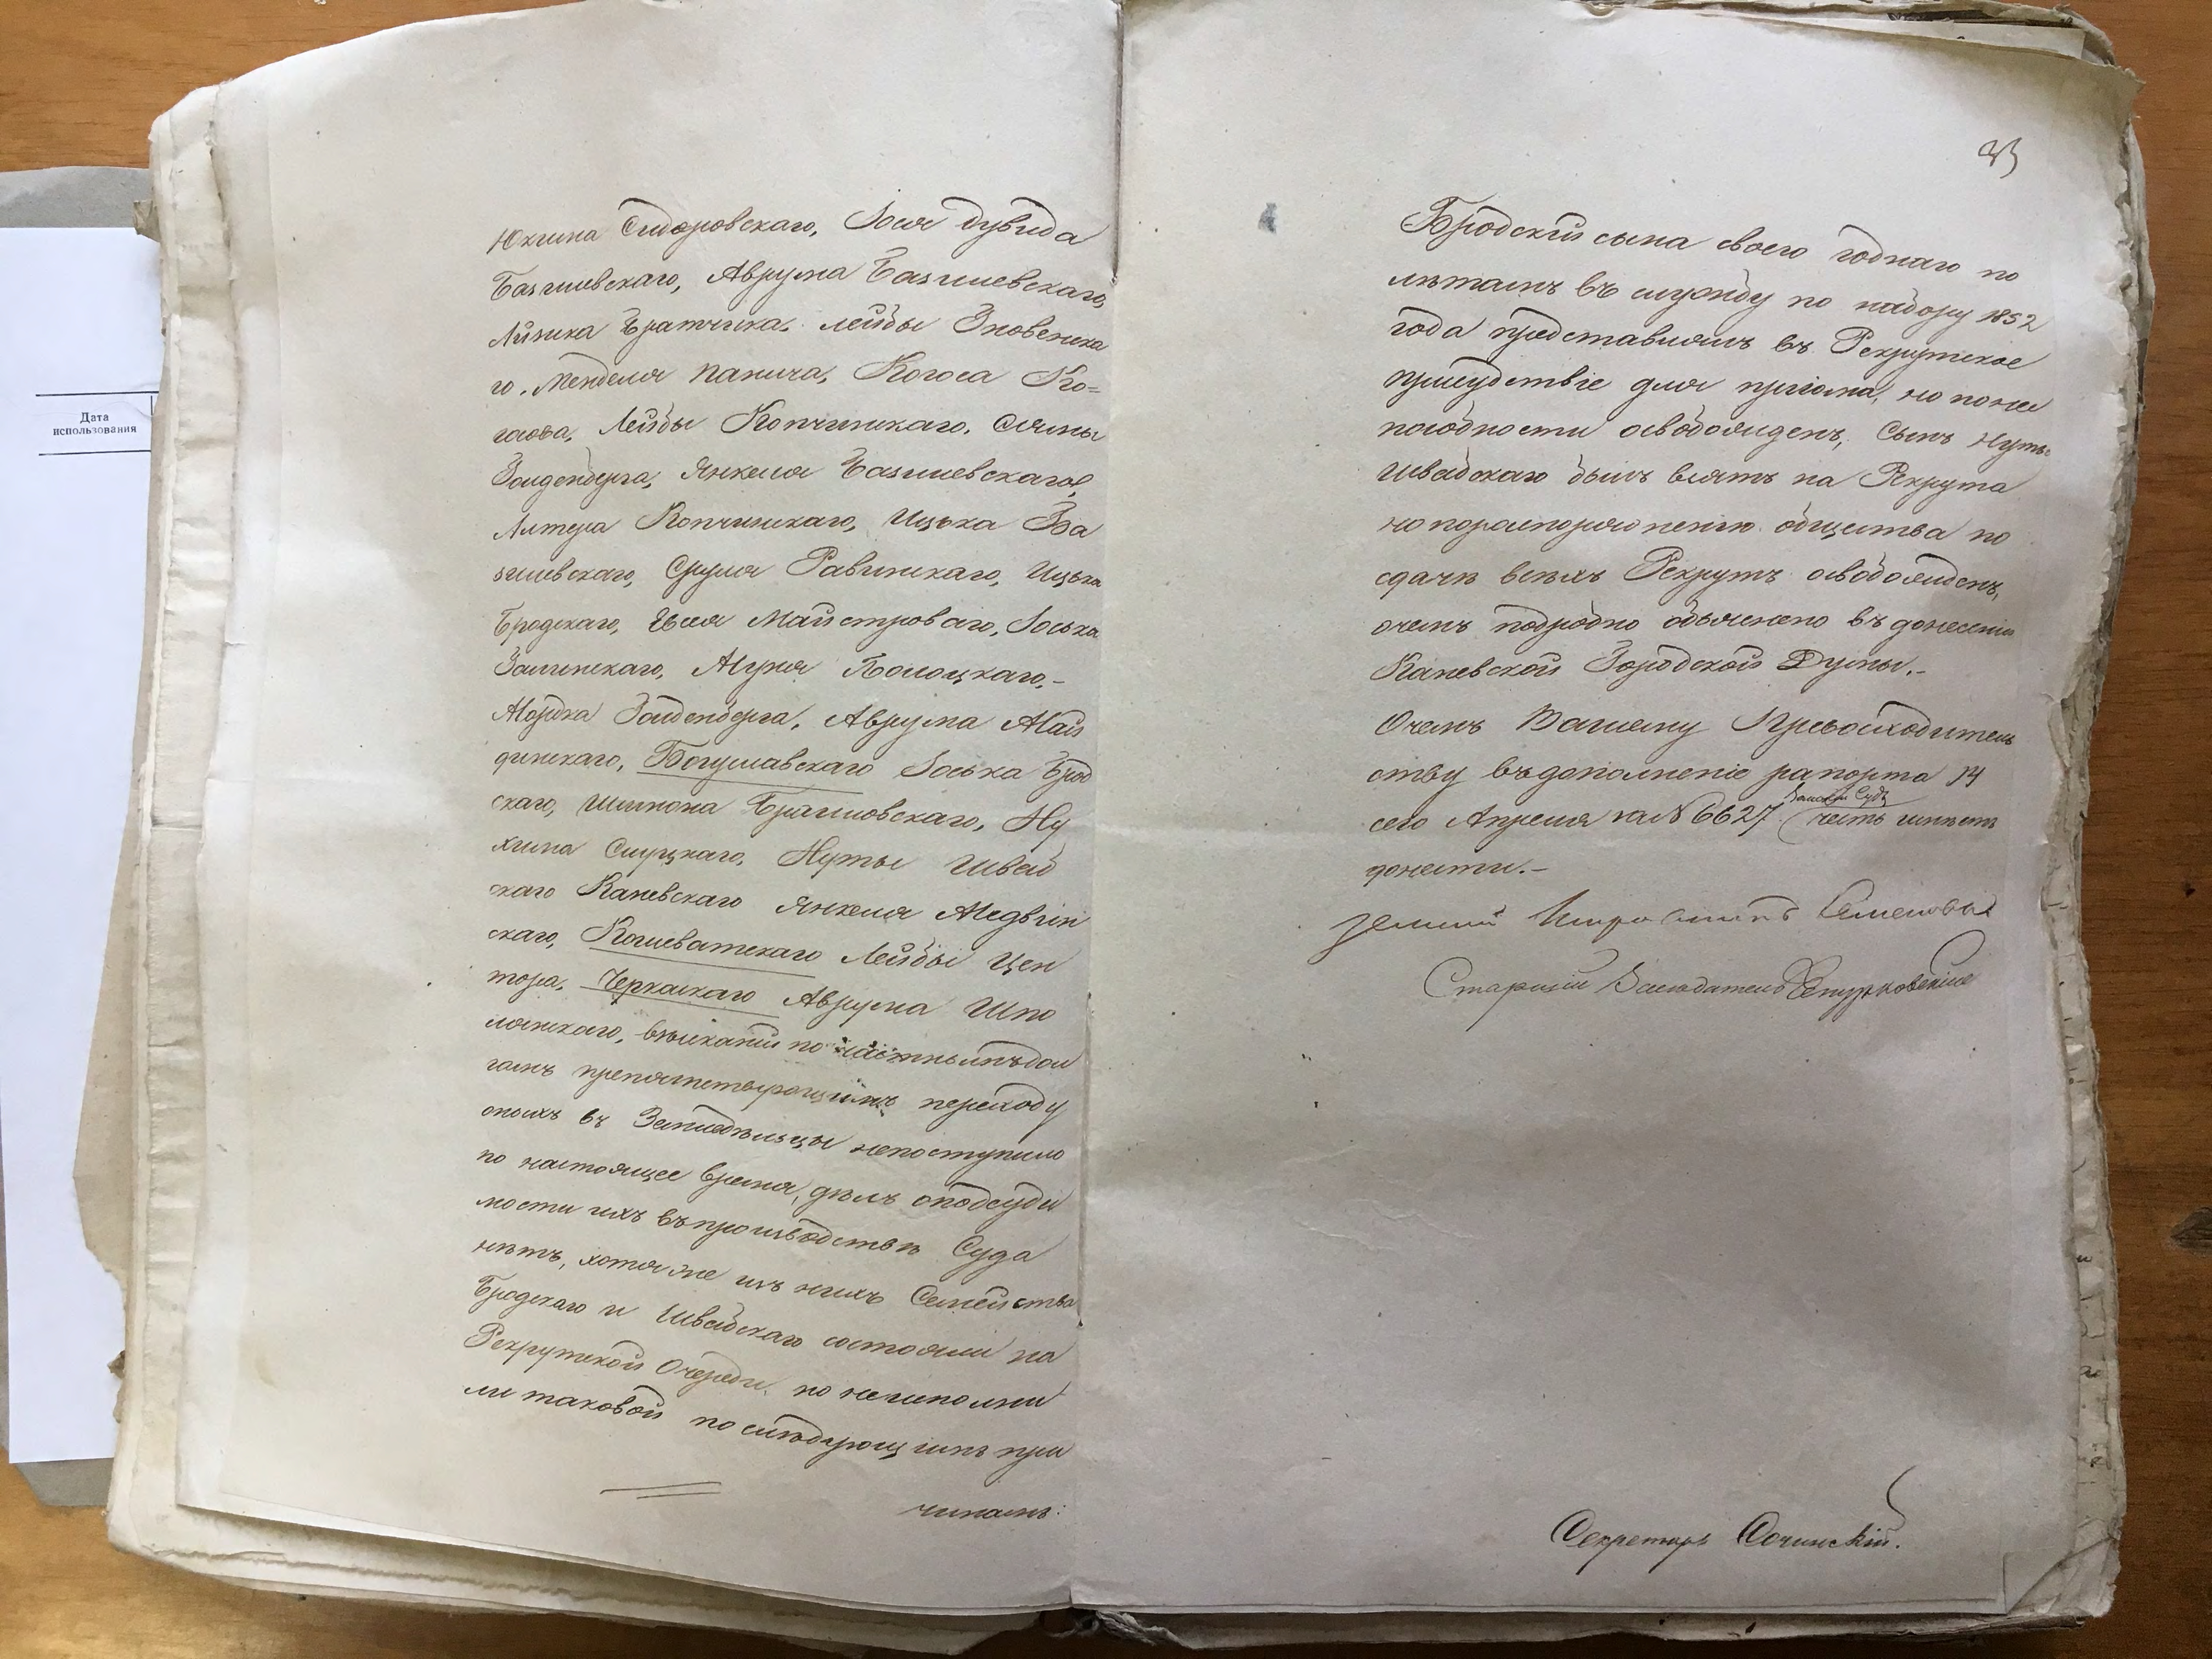 Дата
использования
Юхима Сидоровскаго, Іося Дувида
Базилевскаго, Аврума Базилевскаго,
Айзика Братчика, Лейбы Зновенска
го, Менделя Панича, Когоса Ко-
гасова, Лейбы Копчинскаго, Сямы
Зайденберга, Янкеля Базилевскаго,
Алтера Копчинскаго, Ицька Ба
зилевскаго, Сруля Равинскаго, Ицька
Бродскаго, Майстроваго, Іоська
Залинскаго, Полоцкаго,-
Мошка Зайденберга, Аврума Май
динскаго, Богуславскаго Іоська Брод
скаго, Шимона Брагиловскаго, Ну
хима Слуцкаго, Нуты Швайб
скаго Каневскаго Янкеля Медвин
скаго, Кошеватскаго Лейбы Цен
тора, Черкаскаго Аврума Шпо
лянскаго, взысканій по частнымъ дол
гамъ препятствующимъ переходу
оныхъ въ Земледельцы непоступило
по настоящее время, делъ оподсуди
мости ихъ въ производстве Суда
нетъ, хотя же изъ нихъ Семейства
Бродскаго и Швайбскаго состояли на
Рекрутской Очереди, но неисполни
ли таковой по следующимъ при
чинамъ:
33
Бродскій сына своего годнаго по
летамъ въ службу по набору 1852
года представлялъ въ Рекрутское
присудствіе для пріема, но по не
погодности освобожденъ, сынъ Нуты
Швайбскаго былъ взятъ на Рекрута
но пораспоряженію общества по
сдаче всехъ Рекрутъ освобожденъ,
очемъ подробно объяснено въ донесеніи
Каневской Городской Думы.-
Очемъ Вашему Превосходитель
ству въ дополненіе рапорта 14
сего Апреля за № 6627 Земскій Судъ честь имеетъ
донести.-
Земскій Исправникъ
Старшій Заседатель
Секретарь Сочинскій.